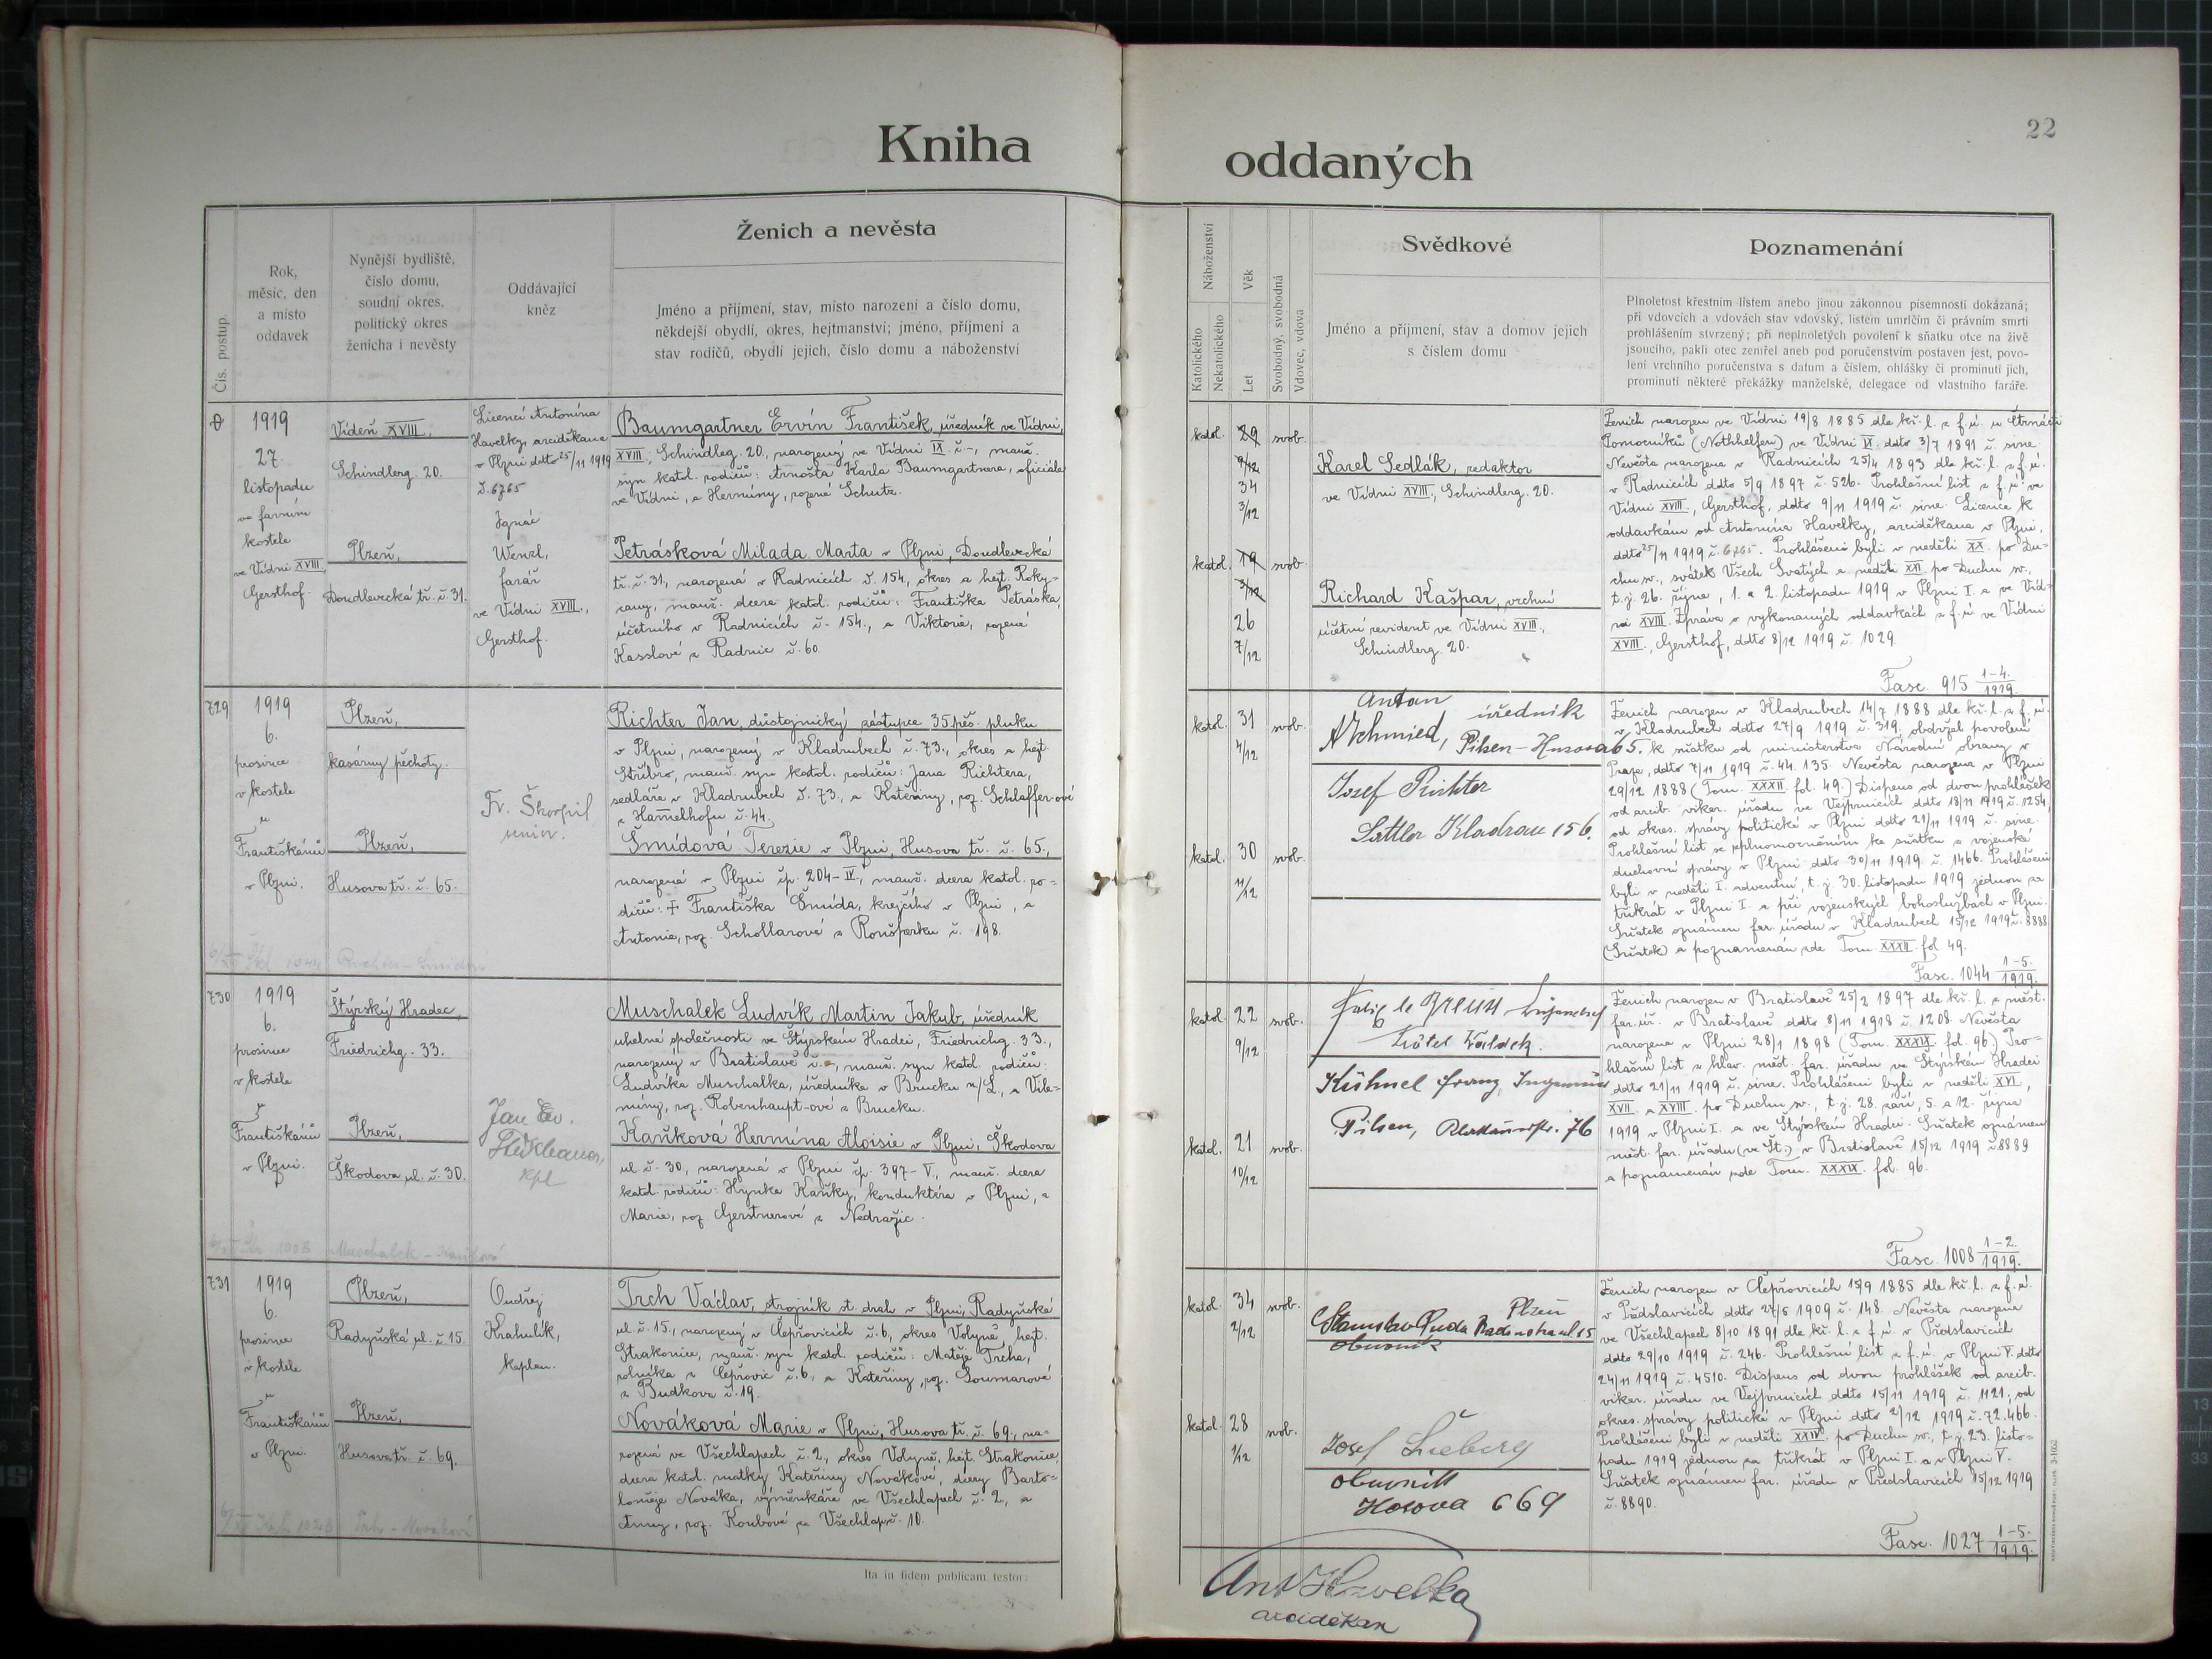 Kniha
oddaných
22
Čís. postup.
Rok,
měsíc, den
a místo
oddavek
Nynější bydliště,
číslo domu,
soudní okres,
politický okres
ženicha i nevěsty
Oddávající
kněz
Ženich a nevěsta
Jméno a příjmení, stav, místo narození a číslo domu,
někdejší obydlí, okres, hejtmanství; jméno, příjmení a
stav rodičů, obydlí jejich, číslo domu a náboženství
Náboženství
Katolického
Nekatolického
Věk
Let
Svobodný, svobodná
Vdovec, vdova
Svědkové
Jméno a příjmení, stav a domov jejich
s číslem domu
Poznamenání
Plnoletost křestním listem anebo jinou zákonnou písemností dokázaná;
při vdovcích a vdovách stav vdovský, listem umrlčím či právním smrti
prohlášením stvrzený; při neplnoletých povolení k sňatku otce na živě
jsoucího, pakli otec zemřel aneb pod poručenstvím postaven jest, povo-
lení vrchního poručenstva s datum a číslem, ohlášky či prominutí jich,
prominutí některé překážky manželské, delegace od vlastního faráře.
1919
27.
listopadu
ve farním
kostele
ve Vídni XVIII,
Gersthof.
Vídeň XVIII,
Schindlerg. 20.
Plzeň,
Doudlevecká tř. č. 31.
Licencí Antonína
Havelky, arciděkana
v Plzni ddto 25/11 1919
č. 6765
Ignác
Wenzl,
farář
ve Vídni XVIII.,
Gersthof.
Baumgartner Ervín František, úředník ve Vídni,
XVIII, Schindleg. 20., narozený ve Vídni IX. č. -, manž.
syn katol. rodičů: Arnošta Karla Baumgartnera, oficiála
ve Vídni, a Hermíny, rozené Schutz.
Petrásková Milada Marta v Plzni, Doudlevecká
tř. č. 31, narozená v Radnicích č. 154, okres a hejt. Roky-
cany, manž. dcera katol. rodičů: Františka Petráska,
účetního v Radnicích č. 154., a Viktorie, rozené
Kasslové z Radnic č. 60.
katol. 29 svob.
9/12
34
3/12
katol. 19 svob.
3/12
26
7/12
Karel Sedlák, redaktor
ve Vídni XVIII., Schindlerg. 20.
Richard Kašpar, vrchní
účetní revident ve Vídni XVIII.,
Schindlerg. 20.
Ženich narozen ve Vídni 19/8 1885 dle kř. l. z f. ú. u Čtrnácti
Pomocníků (Nothhelfen) ve Vídni IX. ddto 3/7 1891 č. sine.
Nevěsta narozena v Radnicích 25/4 1893 dle kř. l. z f. ú.
v Radnicích ddto 5/9 1897 č. 526. Prohlášní list z f. ú. ve
Vídni XVIII., Gersthof, ddto 9/11 1919 č. sine. Licence k
oddavkám od Antonína Havelky, arciděkana v Plzni,
ddto 25/11 1919 č. 6765. Prohlášeni byli v neděli XX. po Du-
chu sv., svátek Všech Svatých a neděli XXI. po Duchu sv.,
t. j. 26. října, 1. a 2. listopadu 1919 v Plzni I. a ve Víd-
ni XVIII. Zpráva o vykonaných oddavkách z f. ú. ve Vídni
XVIII., Gersthof, ddto 8/12 1919 č. 1029.
Fasc. 915 1-4./1919.
729
1919
6.
prosince
v kostele
u
Františkánů
v Plzni.
Plzeň,
kasárny pěchoty.
Plzeň,
Husova tř. č. 65.
Fr. Škorpil
Richter Jan, důstojnický zástupce 35 pěš. pluku
v Plzni, narozený v Kladrubech č. 73., okres a hejt.
Stříbro, manž. syn katol. rodičů: Jana Richtera,
sedláře v Kladrubech č. 73., a Kateřiny, roz. Schlaffer-ové
z Hamelhofu č. 44.
Šmídová Terezie v Plzni, Husova tř. č. 65.,
narozená v Plzni čp. 204-IV., manž. dcera katol. ro-
dičů: † Františka Šmída, krejčího v Plzni, a
Antonie, roz. Schollarové z Ronšperku č. 198.
katol. 31 svob.
4/12
katol. 30 svob.
11/12
Anton
ASchmied, úředník
Pilsen-Husova 65.
Josef Richter
Sattler Kladrau 156.
Ženich narozen v Kladrubech 14/7 1888 dle kř. l. z f. ú.
v Kladrubech ddto 27/9 1919 č. 319. obdržel povolení
k sňatku od ministerstva Národní obrany v
Praze, ddto 7/11 1919 č. 44.135. Nevěsta narozena v Plzni
29/12 1888 (Tom. XXXII. fol. 49.) Dispens od dvou prohlášek
od arcib. vikar. úřadu ve Vejprnicích ddto 18/11 1919 č. 1254,
od okres. správy politické v Plzni ddto 21/11 1919 č. sine.
Prohlášní list se zplnomocněním ke sňatku z vojenské
duchovní správy v Plzni ddto 30/11 1919 č. 1466. Prohlášeni
byli v neděli I. adventní, t. j. 30. listopadu 1919 jednou za
třikrát v Plzni I. a při vojenských bohoslužbách v Plzni.
Sňatek oznámen far. úřadu v Kladrubech 15/12 1919 č. 8888
(Sňatek) a poznamenán zde Tom. XXXII. fol. 49.
Fasc. 1044 1-5./1919.
730
1919
6.
prosince
v kostele
u
Františkánů
v Plzni.
Štýrský Hradec,
Friedrichg. 33.
Plzeň,
Škodova ul. č. 30.
Jan Ev.
kpl
Muschalek Ludvík Martin Jakub, úředník
uhelné společnosti ve Štýrském Hradci, Friedrichg. 33.,
narozený v Bratislavě č. -, manž. syn katol. rodičů:
Ludvíka Muschalka, úředníka v Brucku n/L., a Vile-
míny, roz. Robenhaupt-ové z Brucku.
Kaňková Hermína Aloisie v Plzni, Škodova
ul. č. 30., narozená v Plzni čp. 397-V., manž. dcera
katol. rodičů: Hynka Kaňky, konduktéra v Plzni, a
Marie, roz. Gerstnerové z Nedražic.
Muschalek - Kaňková
katol. 22 svob.
9/12
katol. 21 svob.
10/12
Hôtel Waldek.
Kühnel Franz, Ingenieur
Pilsen, 76
Ženich narozen v Bratislavě 25/2 1897 dle kř. l. z měst.
far. úř. v Bratislavě ddto 8/11 1918 č. 1208. Nevěsta
narozena v Plzni 28/1 1898 (Tom. XXXIX. fol. 96.) Pro-
hlášní list z hlav. měst. far. úřadu ve Štýrském Hradci
ddto 21/11 1919 č. sine. Prohlášeni byli v neděli XVI.,
XVII. a XVIII. po Duchu sv., t. j. 28. září, 5. a 12. října
1919 v Plzni I. a ve Štýrském Hradci. Sňatek oznámen
měst. far. úřadu (ve Št.) v Bratislavě 15/12 1919 č. 8889
a poznamenán zde Tom. XXXIX. fol. 96.
Fasc. 1008 1-2./1919.
731
1919
6.
prosince
v kostele
u
Františkánů
v Plzni.
Plzeň,
Radyňská ul. č. 15.
Plzeň,
Husova tř. č. 69.
Ondřej
Krahulík,
kaplan.
Trch Václav, strojník st. drah v Plzni, Radyňská
ul. č. 15., narozený v Čepřovicích č. 6, okres Volyně, hejt.
Strakonice, manž. syn katol. rodičů: Matěje Trcha,
rolníka z Čepřovic č. 6., a Kateřiny, roz. Soumarové
z Budkova č. 19.
Nováková Marie v Plzni, Husova tř. č. 69., na-
rozená ve Všechlapech č. 2., okres Volyně, hejt. Strakonice,
dcera katol. matky Kateřiny Novákové, dcery Barto-
loměje Nováka, výměnkáře ve Všechlapech č. 2., a
Anny, roz. Koubové ze Všechlap č. 10.
katol. 34 svob.
2/12
katol. 28 svob.
1/12
Plzeň
Stanislav Duda
obuvník
Josef Lieberg
obuvnik
Husova 669
Ženich narozen v Čepřovicích 15/9 1885 dle kř. l. z f. ú.
v Předslavicích ddto 27/6 1909 č. 148. Nevěsta narozena
ve Všechlapech 8/10 1891 dle kř. l. z f. ú. v Předslavicích
ddto 29/10 1919 č. 246. Prohlášní list z f. ú. v Plzni V. ddto
24/11 1919 č. 4510. Dispens od dvou prohlášek od arcib.
vikar. úřadu ve Vejprnicích ddto 15/11 1919 č. 1121; od
okres. správy politické v Plzni ddto 2/12 1919 č. 72.466.
Prohlášeni byli v neděli XXIV. po Duchu sv., t. j. 23. listo-
padu 1919 jednou za třikrát v Plzni I. a v Plzni V.
Sňatek oznámen far. úřadu v Předslavicích 15/12 1919
č. 8890.
Fasc. 1027 1-5./1919.
Ita in fidem publicam testor:
Ant Havelka
arciděkan